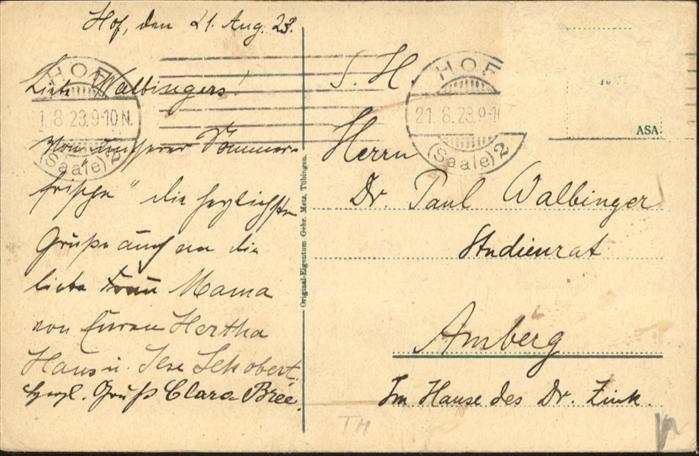 Hof, den 21. Aug. 23.
Liebe Walbingers!
Von unserer „Sommer-
frische“ die herzlichsten
Grüße auch an die
liebe Frau Mama
von Euren Hertha
Hans u. Ilse Schobert.
Herzl. Gruß Clara Brée.
HOF
21.8.23.9-10N.
(Saale) 2
HOF
21.8.23.9-1
(Saale) 2
ASA
Original-Eigentum Gebr. Metz, Tübingen.
S. H
Herrn
Dr. Paul Walbinger
Studienrat
Amberg
Im Hause des Dr. Zink.
TH